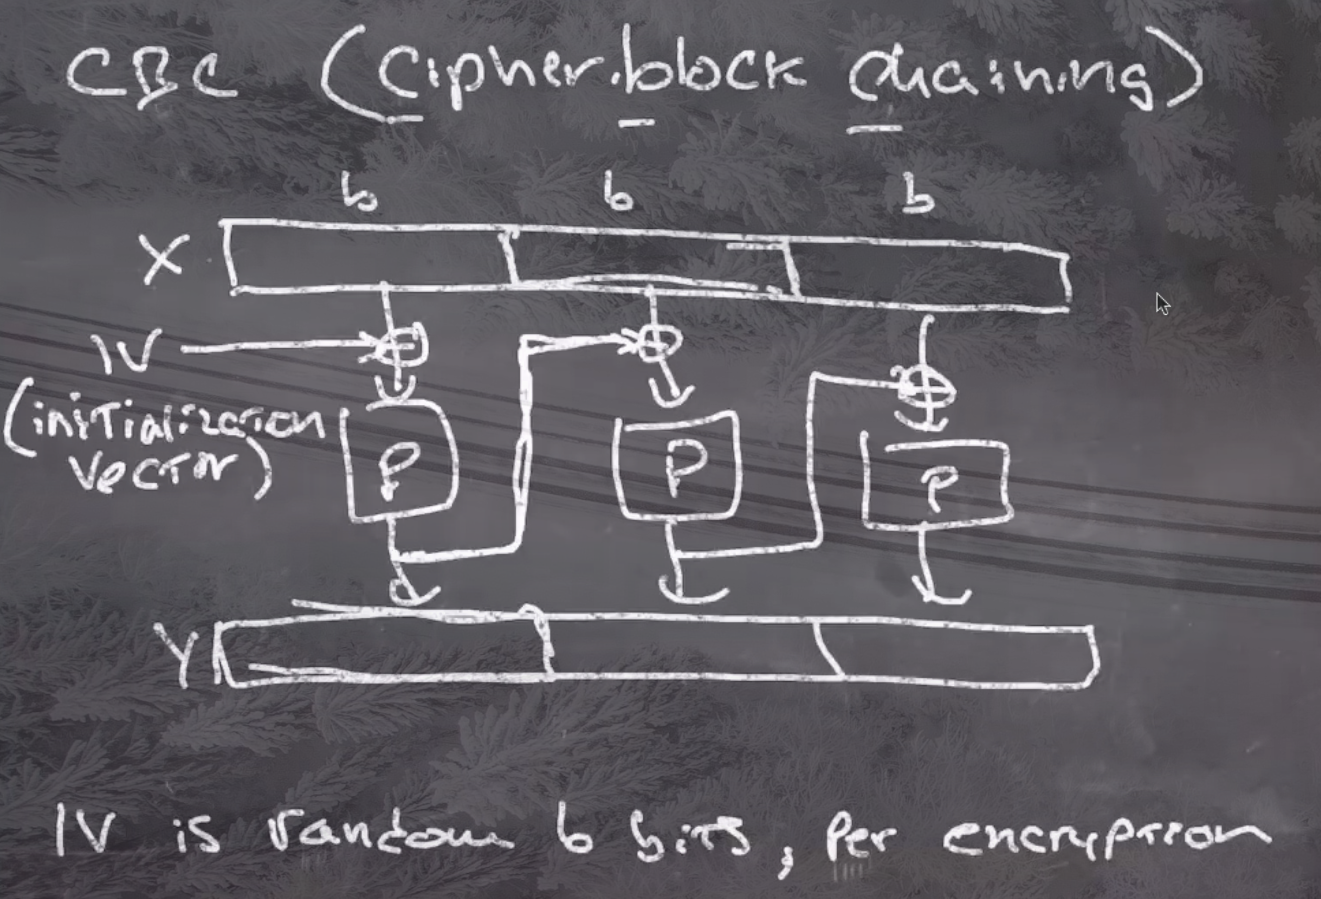 CBC (Cipher block chaining)
b b b
X
IV
(initialization
vector)
P P P
Y
IV is random b bits, per encryption